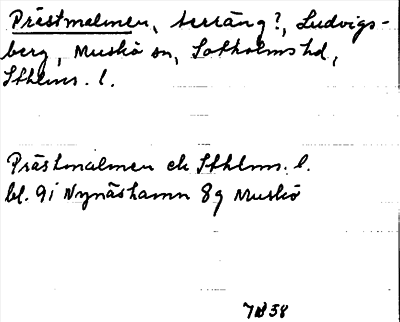 Prästmalmen, terräng?, Ludvigs-
berg, Muskö sn, Sotholms hd,
Sthlms. l.
Prästmalmen ek Sthlms. l.
bl. 9i Nynäshamn 8g Muskö
58